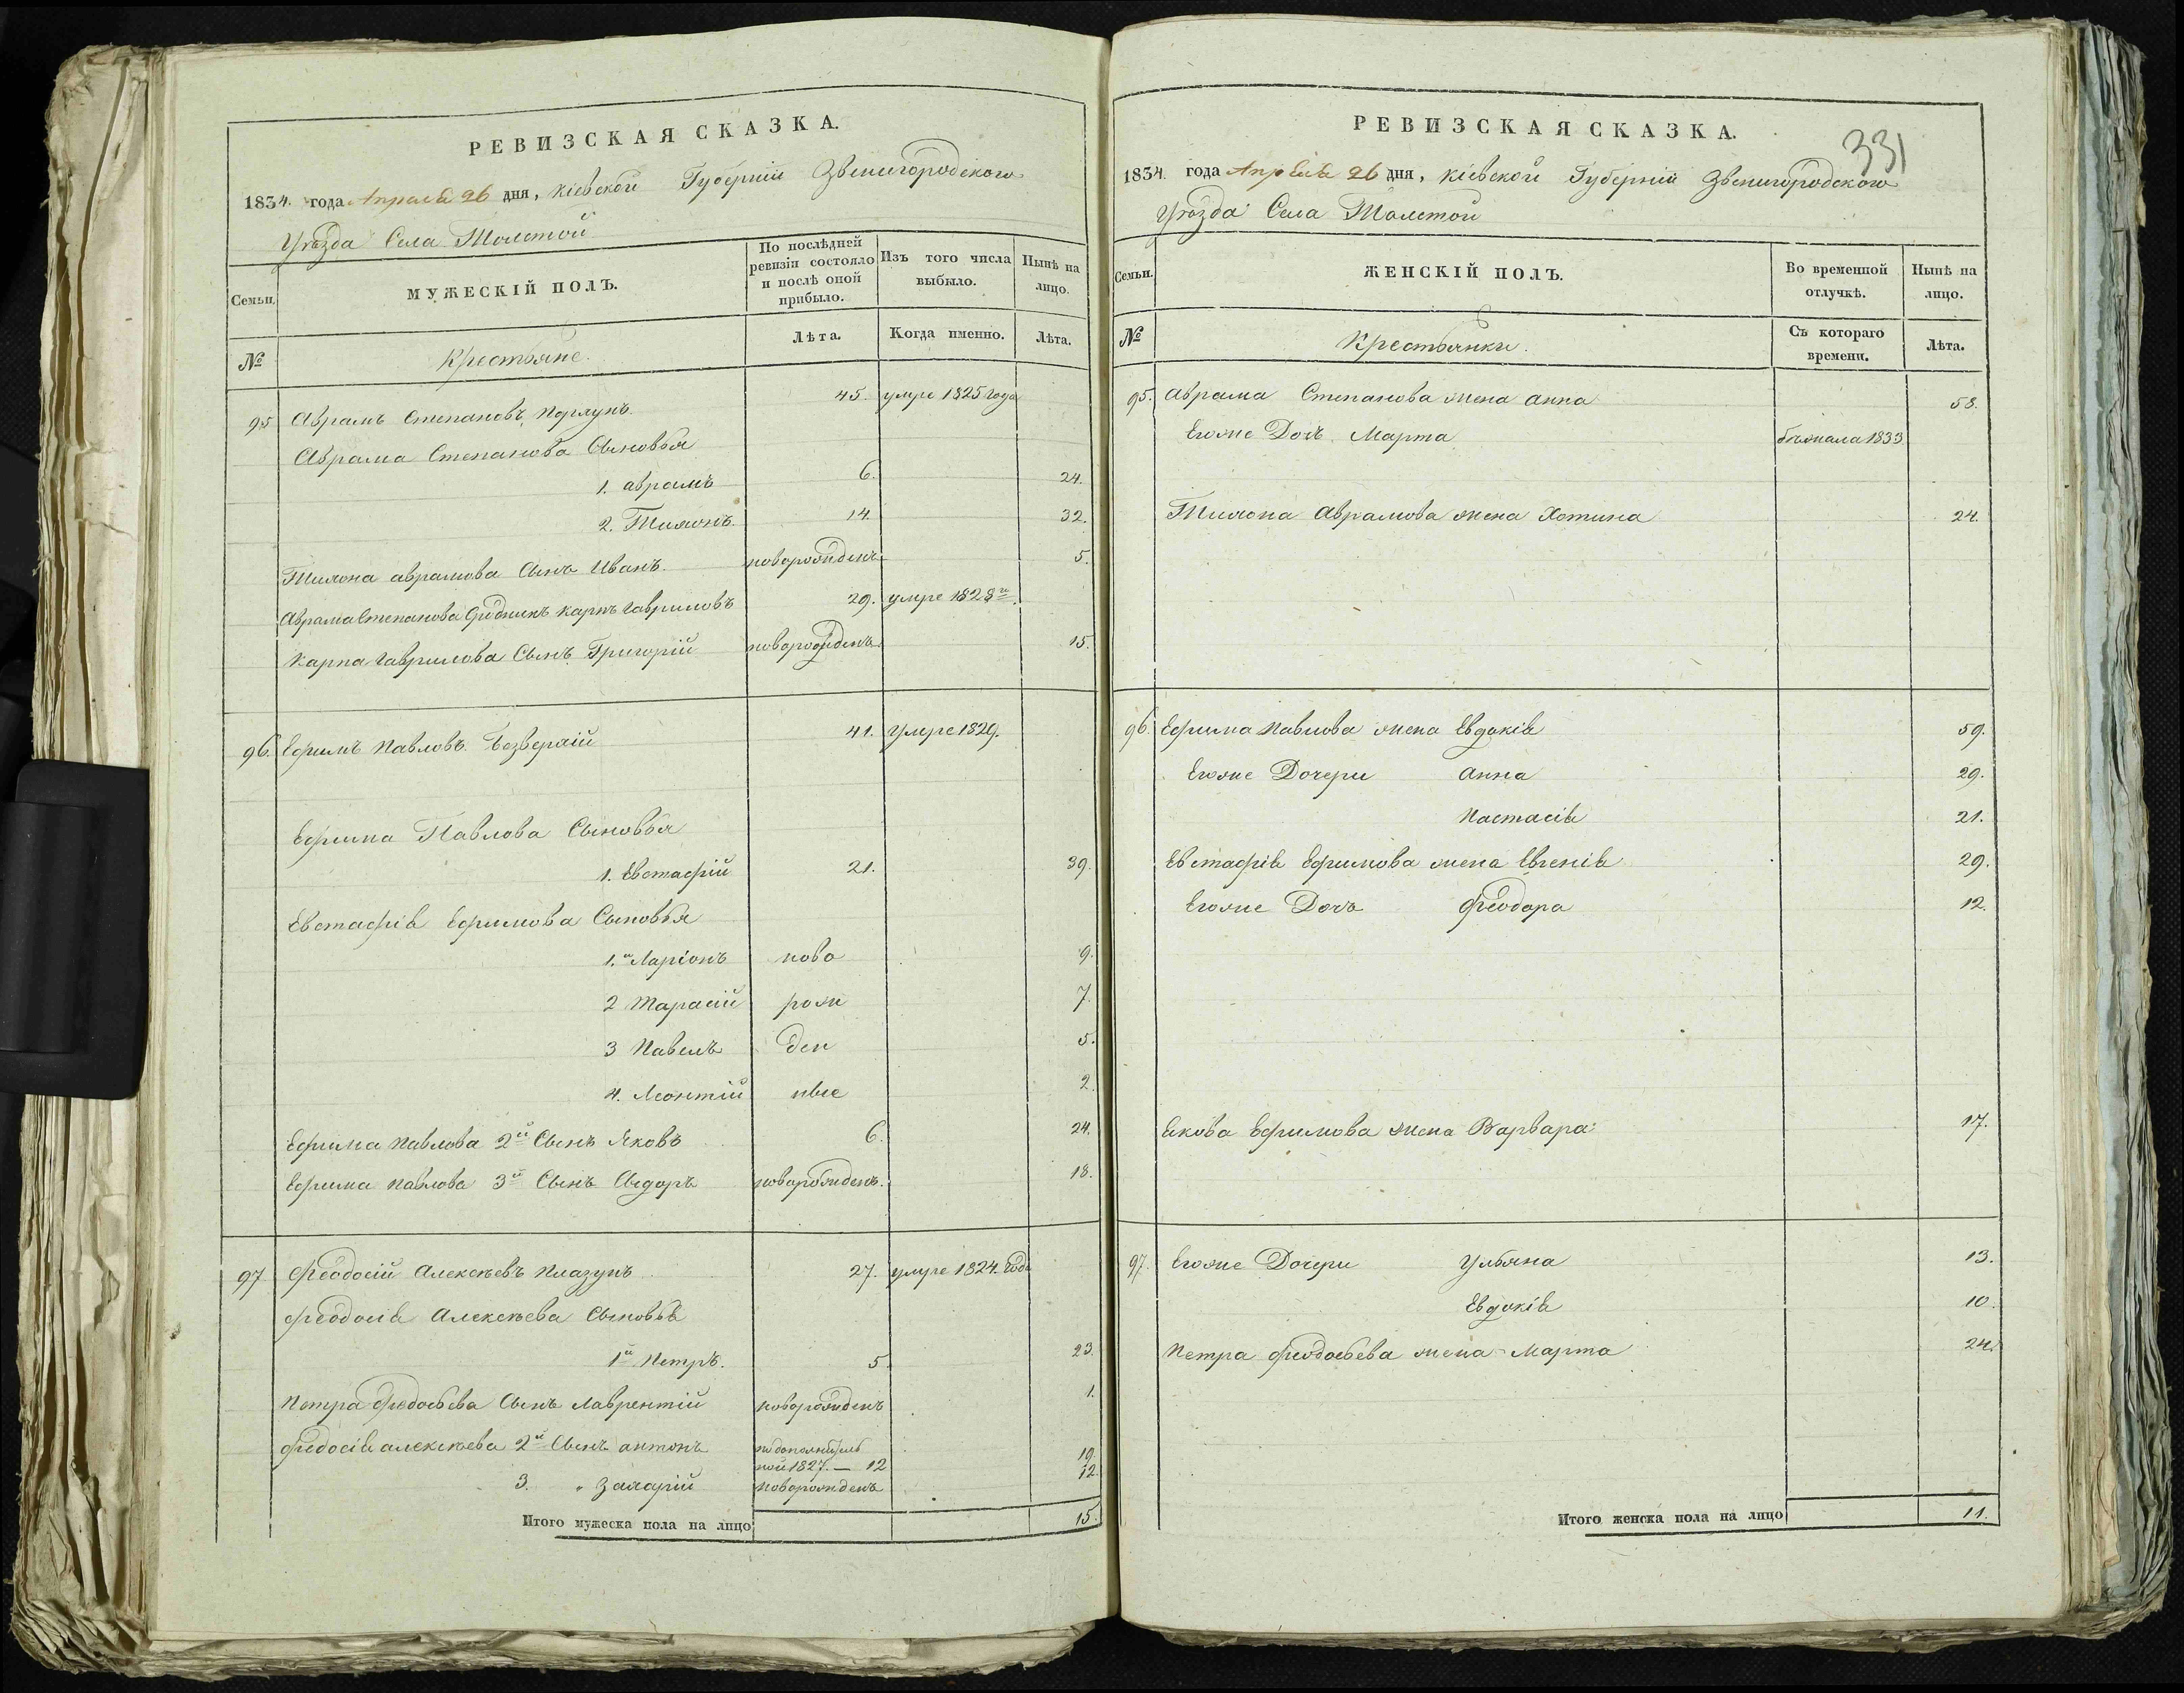 РЕВИЗСКАЯ СКАЗКА.
1834. года Апреля 26 дня, Кіевской Губерніи Звенигородского
Уѣзда Села Толстой
Семьи.
МУЖЕСКІЙ ПОЛЪ.
По послѣдней ревизіи состояло и послѣ оной прибыло.
Изъ того числа выбыло.
Нынѣ на лицо.
№
Крестьяне.
Лѣта.
Когда именно.
Лѣта.
95 Аврамъ Степановъ 45. умре 1825 года
Аврама Степанова Сыновья
1. аврамъ 6. 24.
2. Тихонъ. 14. 32.
Тихона аврамова Сынъ Иванъ. новорожденъ 5.
Аврама Степанова карпъ Гавриловъ 29. умре 1828го.
Карпа Гаврилова Сынъ Григорій новорожденъ 15.
96. Ефимъ Павловъ. 41. умре 1829.
Ефима Павлова Сыновья
1. Евстафій 21. 39.
Евстафія Ефимова Сыновья
1.й Ларіонъ ново 9.
2 Тарасій рож 7.
3 Павелъ ден 5.
4. Леонтій ные 2.
Ефима Павлова 2й Сынъ Яковъ 6. 24.
Ефима Павлова 3й Сынъ Сидоръ новорожденъ. 18.
97 Феодосій Алексѣевъ Плазунъ 27. умре 1824. года
Феодосія Алексѣева Сыновья
1й Петръ. 5. 23.
Петра Федосьева Сынъ Лаврентій новорожденъ 1.
Федосія алексѣева 2й Сынъ антонъ по дополнитель
ной 1827. — 12 19.
3. " Захарій новорожденъ 12.
Итого мужеска пола на лицо 15.
РЕВИЗСКАЯ СКАЗКА.
331
1834. года Апреля 26 дня, Кіевской Губерніи Звенигородского
Уѣзда Села Толстой
Семьи.
ЖЕНСКІЙ ПОЛЪ.
Во временной отлучкѣ.
Нынѣ на лицо.
№
Крестьянки.
Съ котораго времени.
Лѣта.
95. Аврама Степанова жена анна 58.
Егоже Дочь Марта бѣжала 1833
Тихона Аврамова жена Хотина 24.
96 Ефима Павлова жена Евдокія 59.
Егоже Дочери анна 29.
Настасія 21.
Евстафія Ефимова жена Евгенія 29.
Егоже Дочь Феодора 12.
Якова Ефимова жена Варвара 17.
97. Егоже Дочери Ульяна 13.
Евдокія 10.
Петра Феодосьева жена Марта 24.
Итого женска пола на лицо 11.